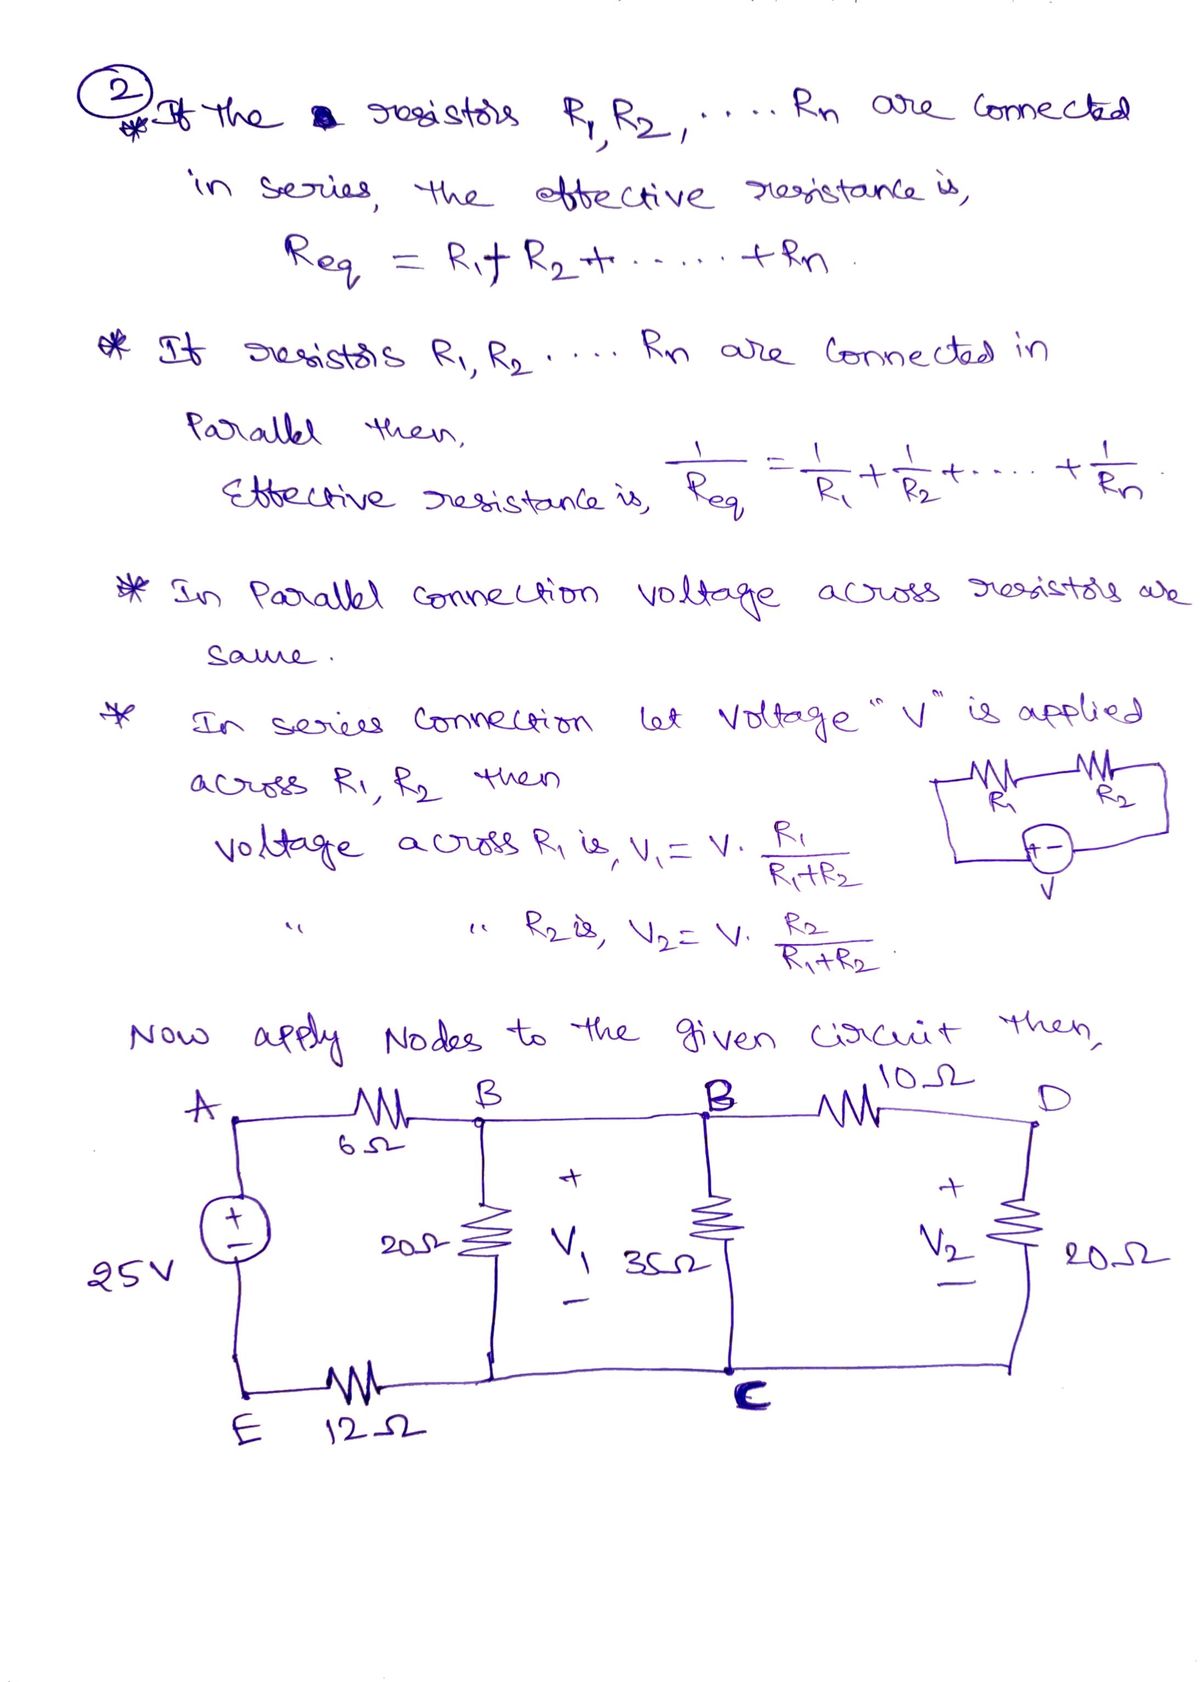 2
* If the resistors R1, R2, ..... Rn are connected
in series, the effective resistance is,
Req = R1 + R2 + ...... + Rn .
* If resistors R1, R2 ..... Rn are connected in
Parallel then,
Effective resistance is, 1/Req = 1/R1 + 1/R2 + ..... + 1/Rn .
* In Parallel connection voltage across resistors are
same .
* In series connection let voltage "V" is applied
across R1, R2 then
R1 R2
voltage across R1 is, V1 = V. R1/(R1+R2)
+ -
V
" " R2 is, V2 = V. R2/(R1+R2) .
Now apply Nodes to the given circuit then,
A B B 10Ω D
6Ω
+ - 25V
20Ω + V1 -
35Ω
+ V2 - 20Ω
E 12Ω C